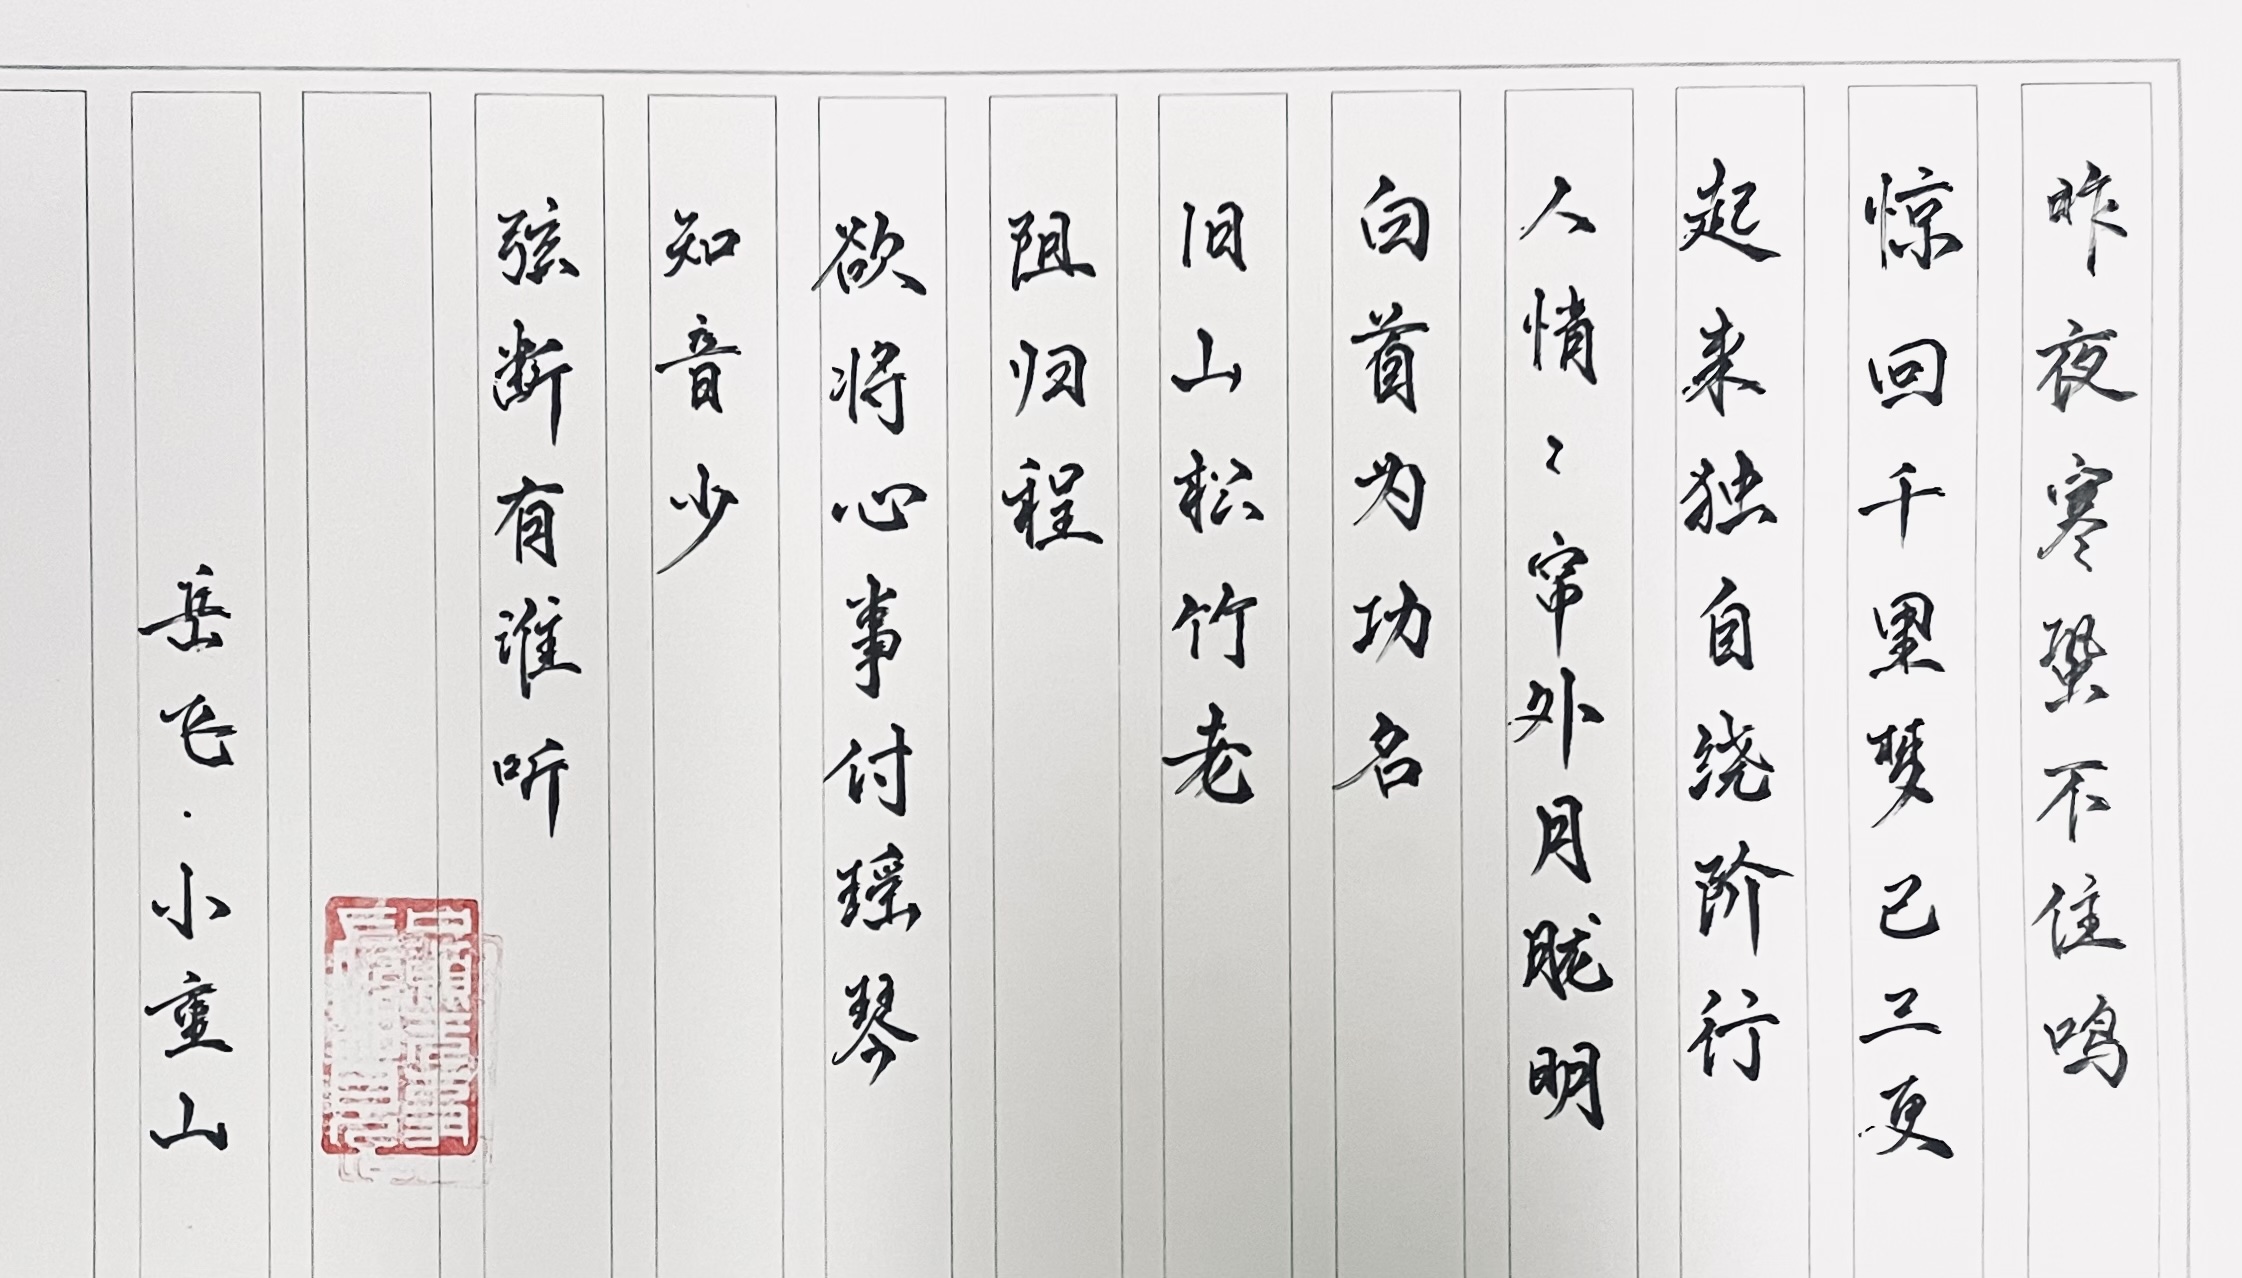 昨夜寒蛩不住鸣
惊回千里梦已三更
起来独自绕阶行
人悄〻帘外月胧明
白首为功名
旧山松竹老
阻归程
欲将心事付瑶琴
知音少
弦断有谁听
岳飞·小重山